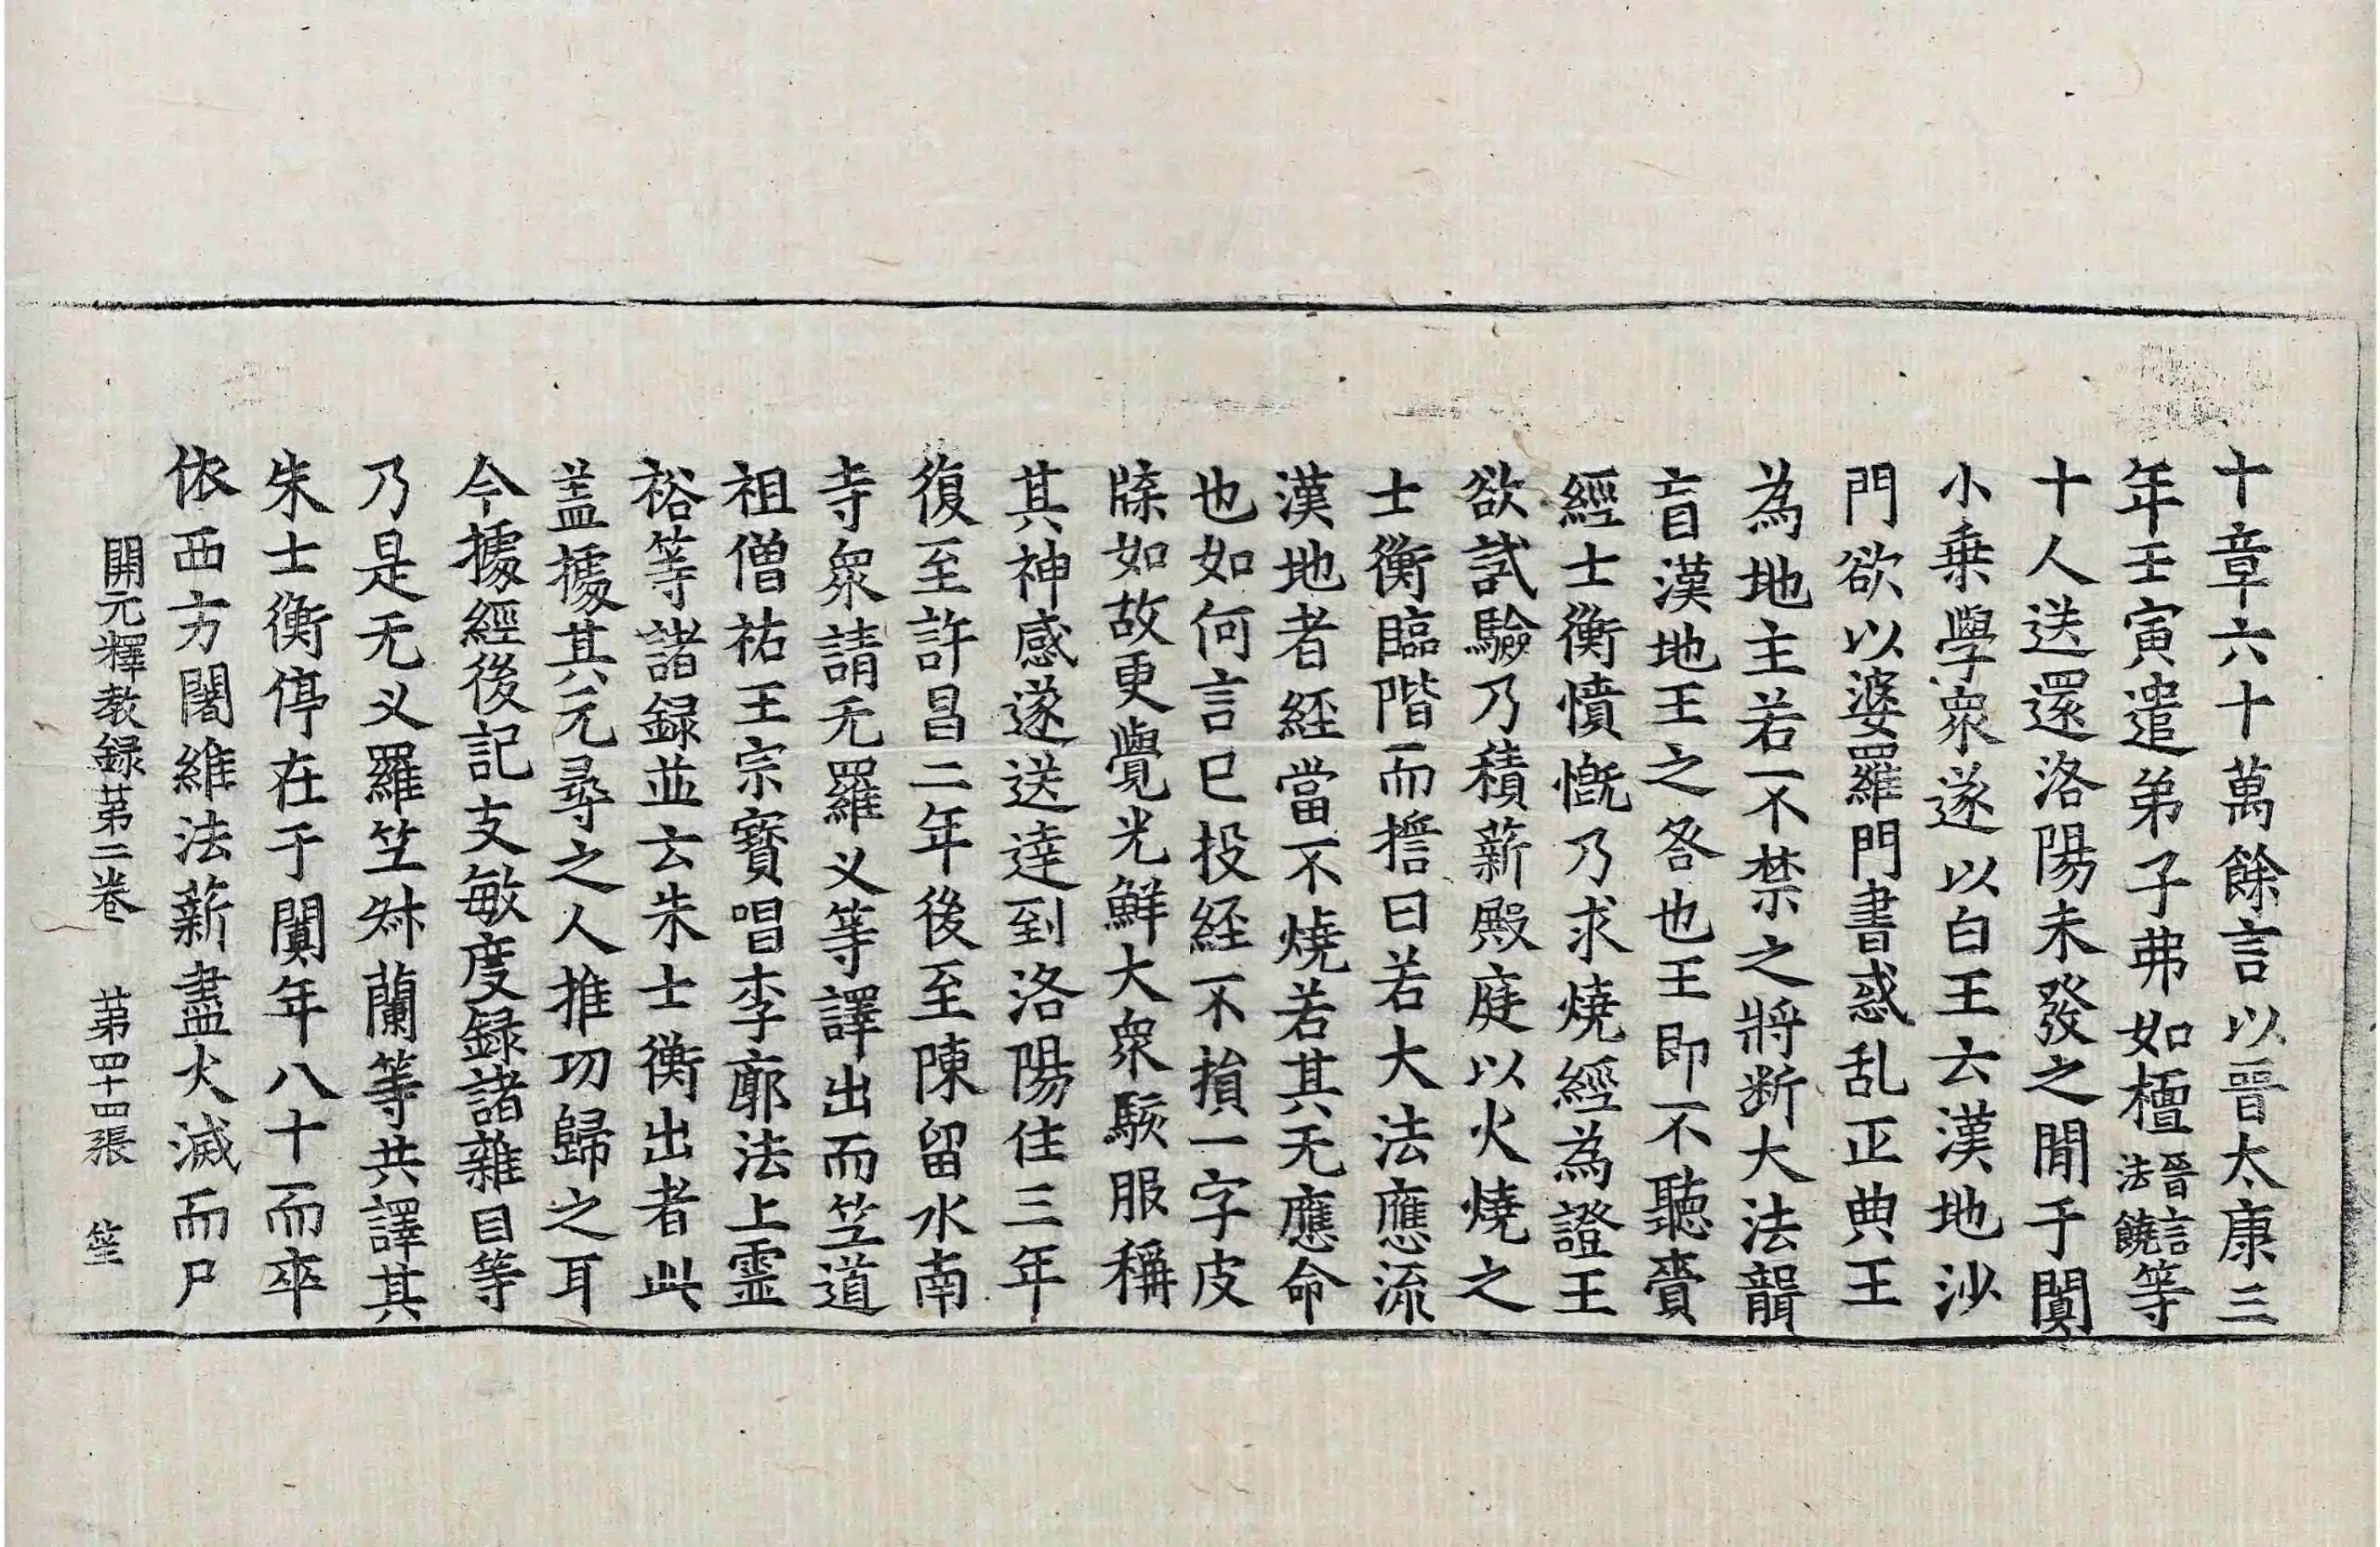 十章六十萬餘言以晉太康三
年壬寅遣弟子弗如檀晉言法饒等
十人送還洛陽未發之間于闐
小乗學衆遂以白王云漢地沙
門欲以婆羅門書惑乱正典王
為地主若不禁之將断大法聾
盲漢地王之咎也王即不聽賷
經士衡憤慨乃求燒經為證王
欲試驗乃積薪殿庭以火燒之
士衡臨階而誓曰若大法應流
漢地者経當不燒若其无應命
也如何言已投経不損一字皮
牒如故更覺光鮮大衆駭服稱
其神感遂送達到洛陽住三年
復至許昌二年後至陳留水南
寺衆請无羅义等譯出而笁道
祖僧祐王宗寳唱李廓法上霊
裕等諸録並云朱士衡出者此
盖據其元尋之人推功歸之耳
今據經後記支敏度録諸雜目等
乃是无义羅笁叔蘭等共譯其
朱士衡停在于闐年八十而卒
依西方闍維法薪盡火滅而尸
開元釋教録第二卷 第四十四張 笙